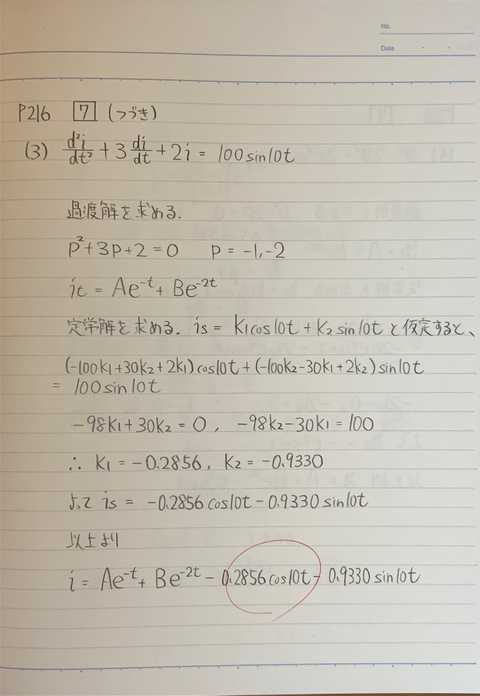 No.
Date
P216 7 (つづき)
(3) d²i/dt² + 3 di/dt + 2i = 100sin10t
過渡解を求める.
p²+3p+2=0 p=-1,-2
it = Ae^-t + Be^-2t
定常解を求める. is = K1cos10t + K2sin10t と仮定すると、
(-100K1+30K2+2K1)cos10t+(-100K2-30K1+2K2)sin10t
= 100sin10t
-98K1+30K2=0, -98K2-30K1=100
∴ K1=-0.2856, K2=-0.9330
よって is = -0.2856cos10t-0.9330sin10t
以上より
i = Ae^-t + Be^-2t - 0.2856cos10t - 0.9330sin10t